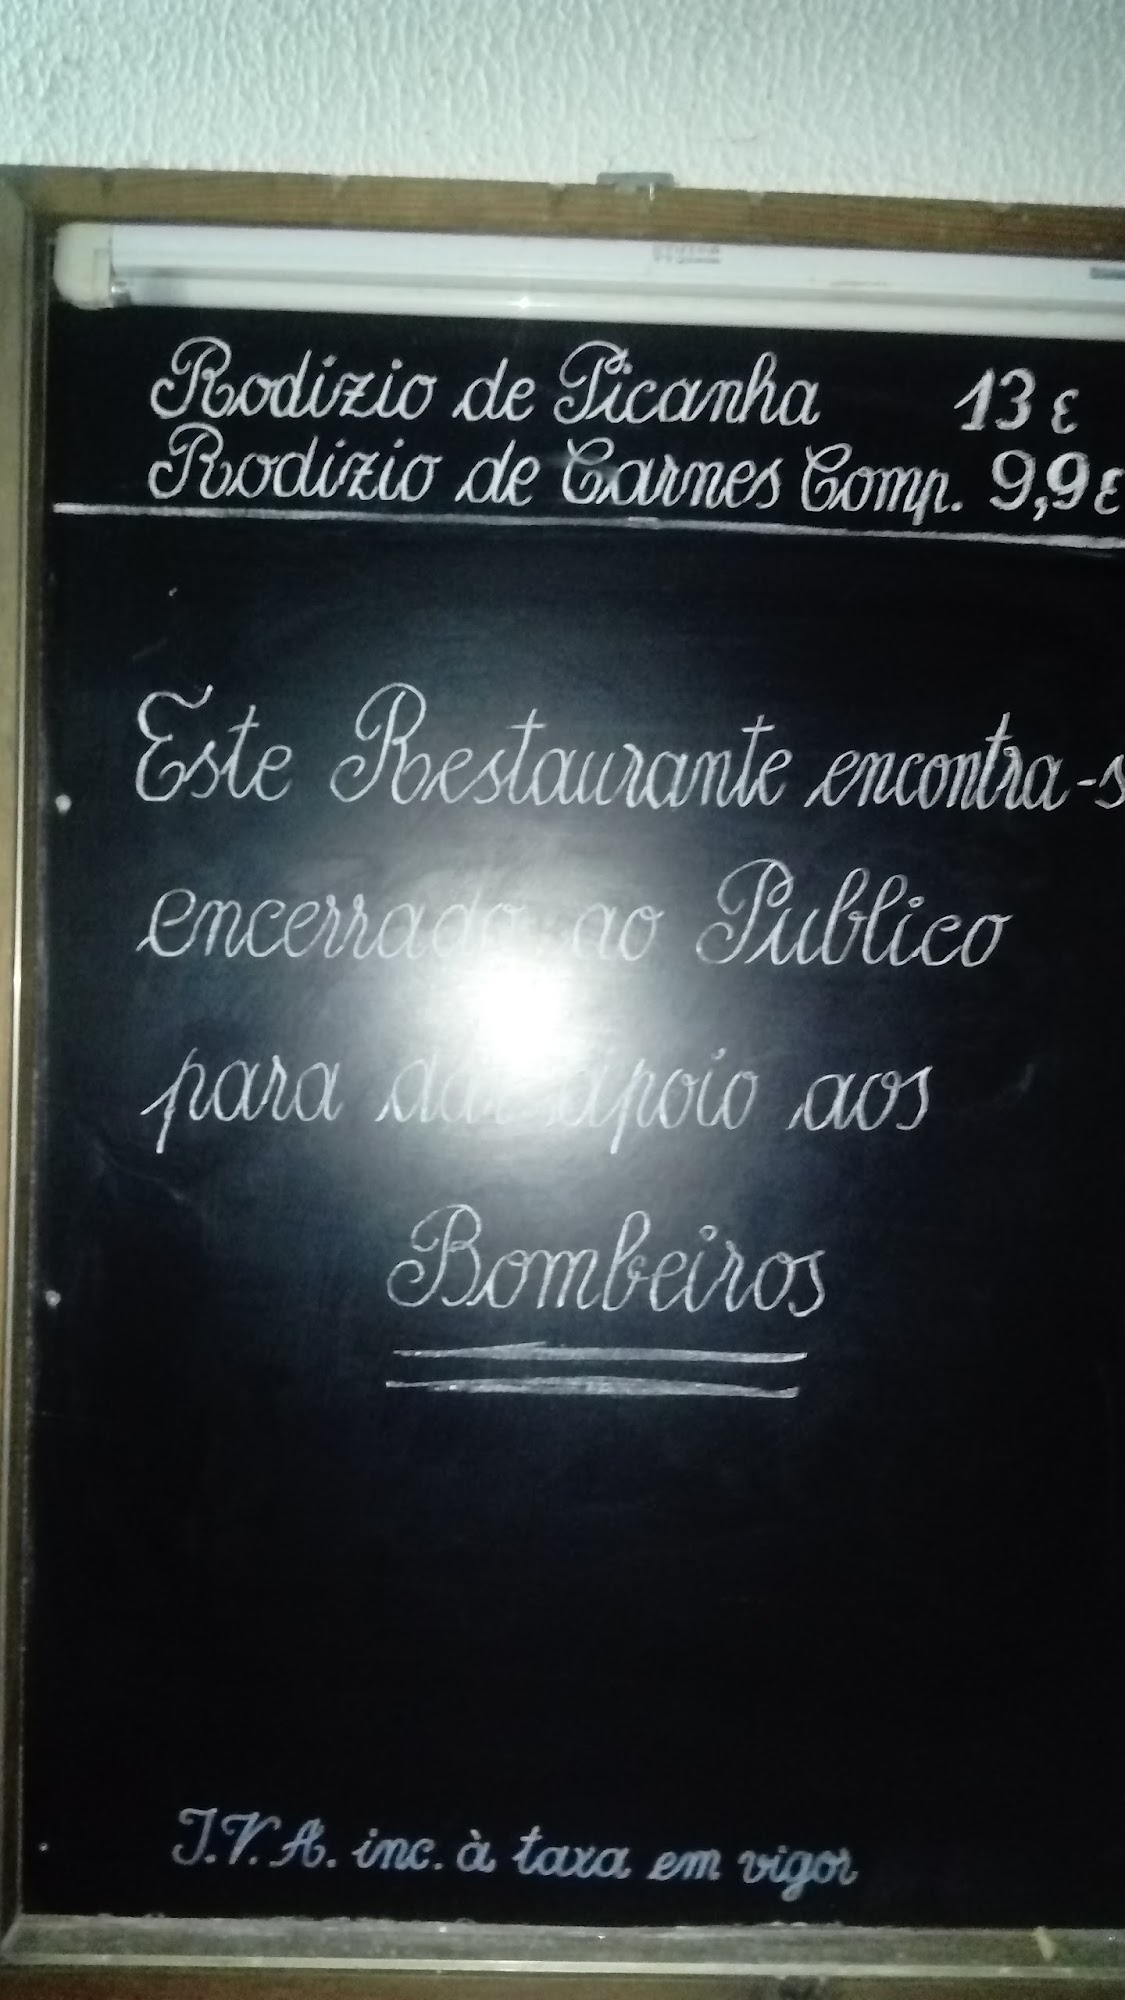 Rodizio de Picanha 13 €
Rodizio de Carnes Comp. 9,9€
Este Restaurante encontra-s
encerrado ao Publico
para dar apoio aos
Bombeiros
I.V.A. inc. à taxa em vigor